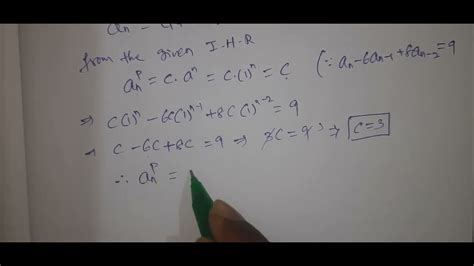 from the given I.H.R
aₙᴾ = c.aⁿ = c.(1)ⁿ = C (∵ aₙ-6aₙ₋₁+8aₙ₋₂=9
⇒ C(1)ⁿ - 6C(1)ⁿ⁻¹ + 8C(1)ⁿ⁻² = 9
→ C - 6C + 8C = 9 ⇒ 3C = 9 3 ⇒ C=3
∴ aₙᴾ =